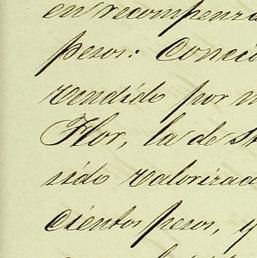 en recompenza
pesos: Concid
vendido por m
Flor, la de St
sido valorizada
cientos pesos, y